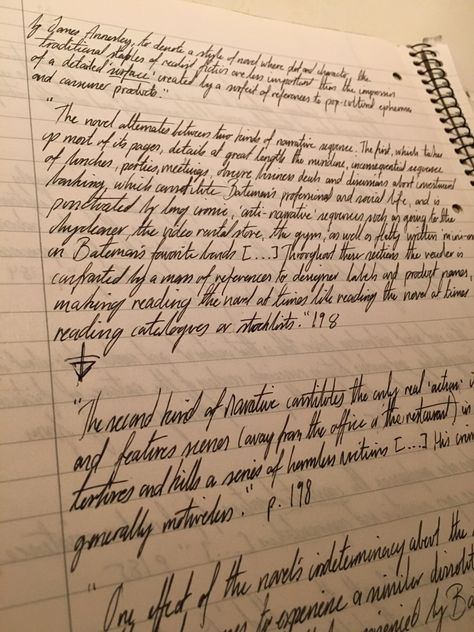 by James Annesley, to denote a style of novel where plot and character, the
traditional staples of realist fiction are less important than the impression
of a detailed 'surface' created by a surfeit of references to pop-cultural ephemera
and consumer products."
"The novel alternates between two kinds of narrative sequence. The first, which takes
up most of its pages, details at great length the mundane, inconsequential sequence
of lunches, parties, meetings, obscure business deals and discussions about investment
banking, which constitute Bateman's professional and social life, and is
punctuated by long comic, anti-narrative sequences such as going to the
drycleaner, the video rental store, the gym, as well as flatly written mini-
on Bateman's favorite bands [....] Throughout these sections the reader is
confronted by a mass of references to designer labels and product names,
making reading the novel at times like reading the novel at times
reading catalogues or stocklists." 198
"The second kind of narrative constitutes the only real 'action'
and features scenes (away from the office or the restaurant) in
tortures and kills a series of harmless victims [....] His
generally motiveless." p. 198
"One effect of the novel's indeterminacy about the
to experience a similar
by Ba